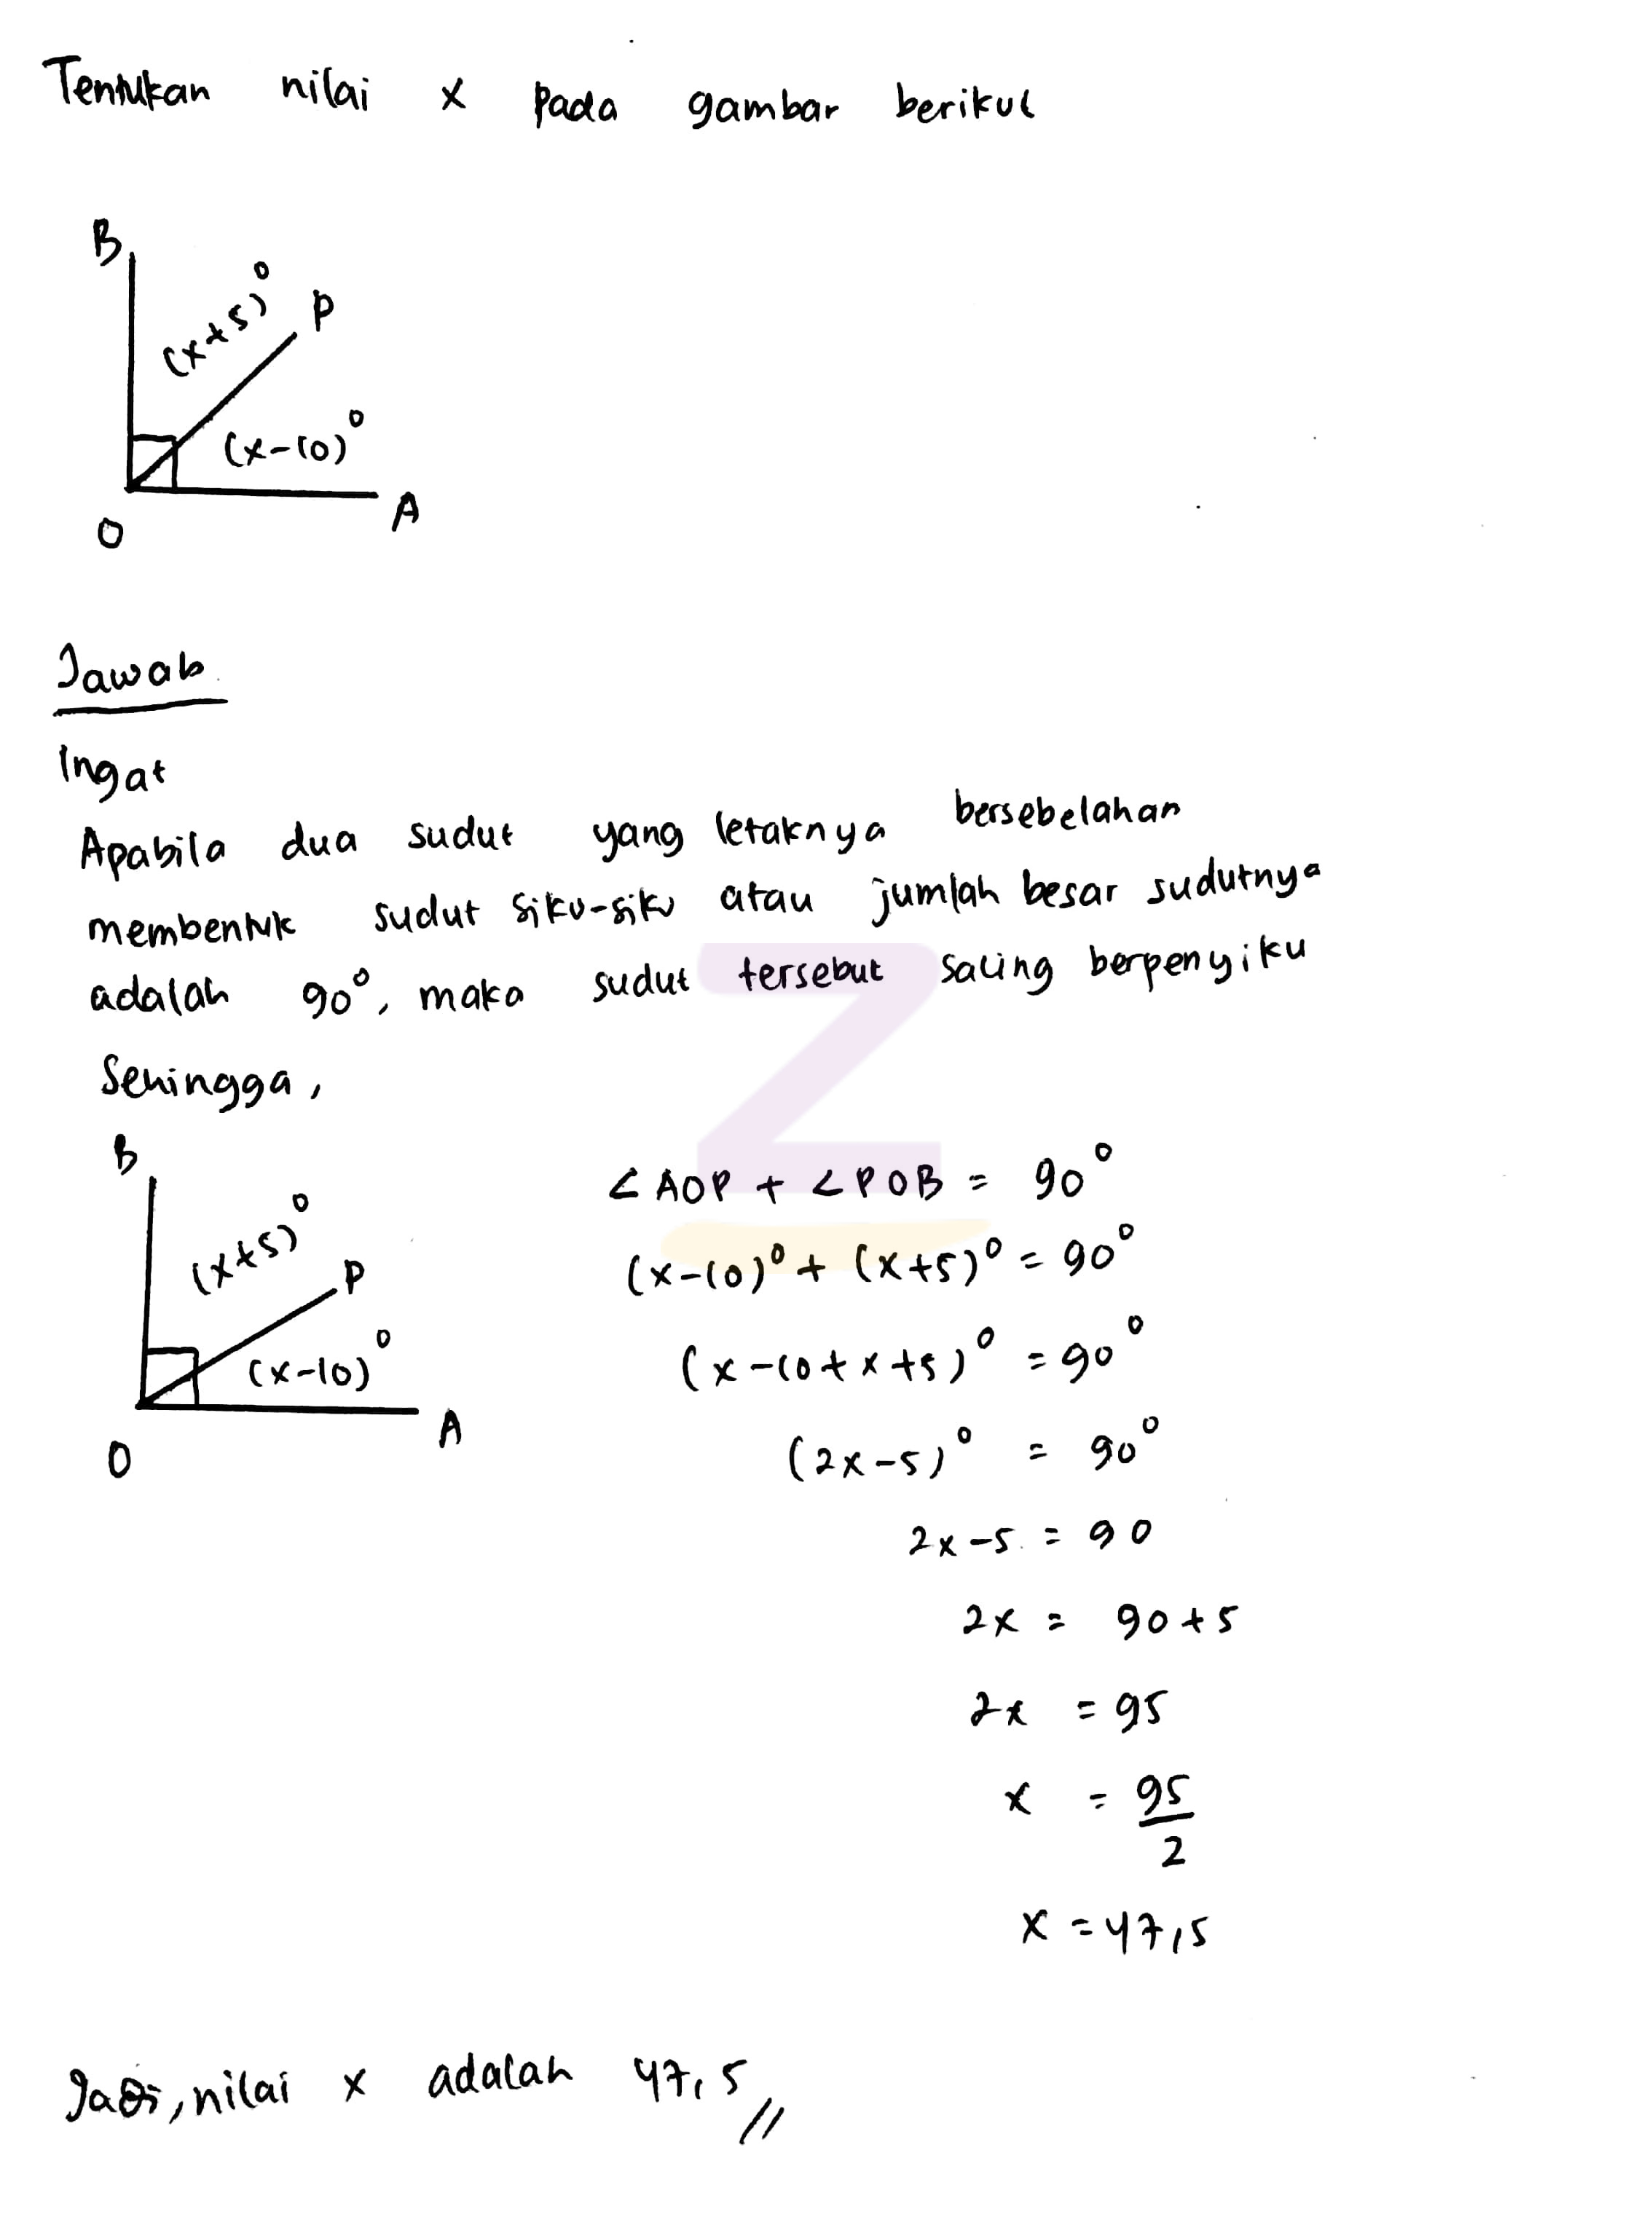 Tentukan nilai x pada gambar berikut
B
(x+5)°
P
(x-10)°
A
O
Jawab
Ingat
Apabila dua sudut yang letaknya bersebelahan
membentuk sudut siku-siku atau jumlah besar sudutnya
adalah 90°, maka sudut tersebut saling berpenyiku
Sehingga,
B
(x+5)°
P
(x-10)°
A
O
∠AOP + ∠POB = 90°
(x-10)° + (x+5)° = 90°
(x-10+x+5)° = 90°
(2x-5)° = 90°
2x-5 = 90
2x = 90+5
2x = 95
x = 95/2
x = 47,5
Jadi, nilai x adalah 47,5 //
Z